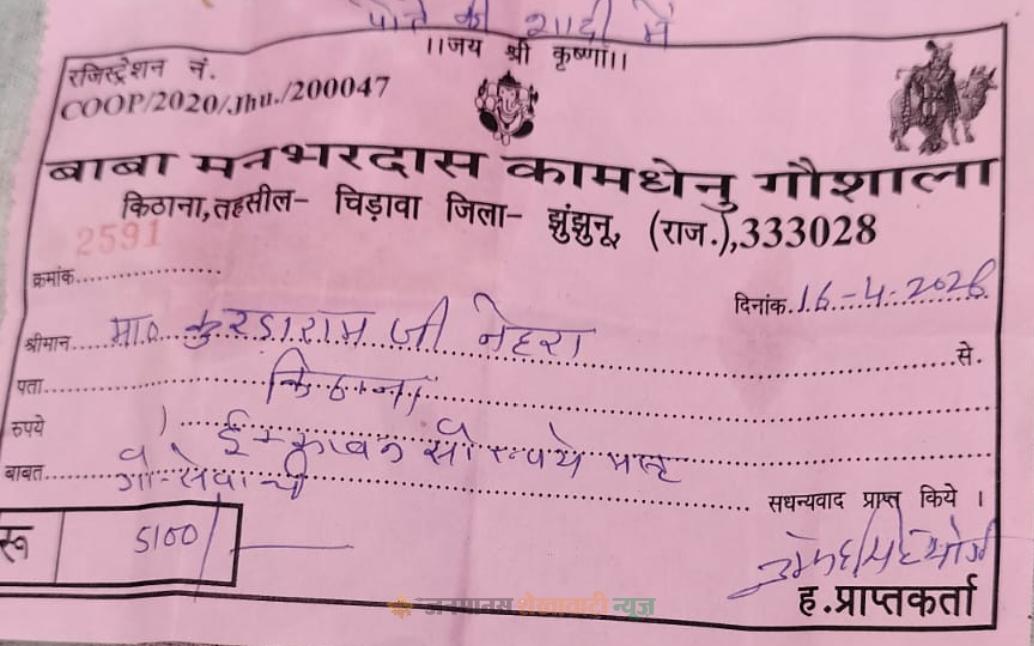 पोते की शादी में
।।जय श्री कृष्णा।।
रजिस्ट्रेशन नं.
COOP/2020/Jhu./200047
बाबा मनभरदास कामधेनु गौशाला
किठाना,तहसील- चिड़ावा जिला- झुंझुनू, (राज.),333028
2591
क्रमांक
दिनांक. 16-4-2026
श्रीमान मा० कुरडाराम जी नेहरा से.
पता किठाना
रुपये ईक्कावन सौ रूपये मात्र
बाबत गौ-सेवार्थ
सधन्यवाद प्राप्त किये ।
रू 5100/
ह.प्राप्तकर्ता
जनमानस शेखावाटी न्यूज